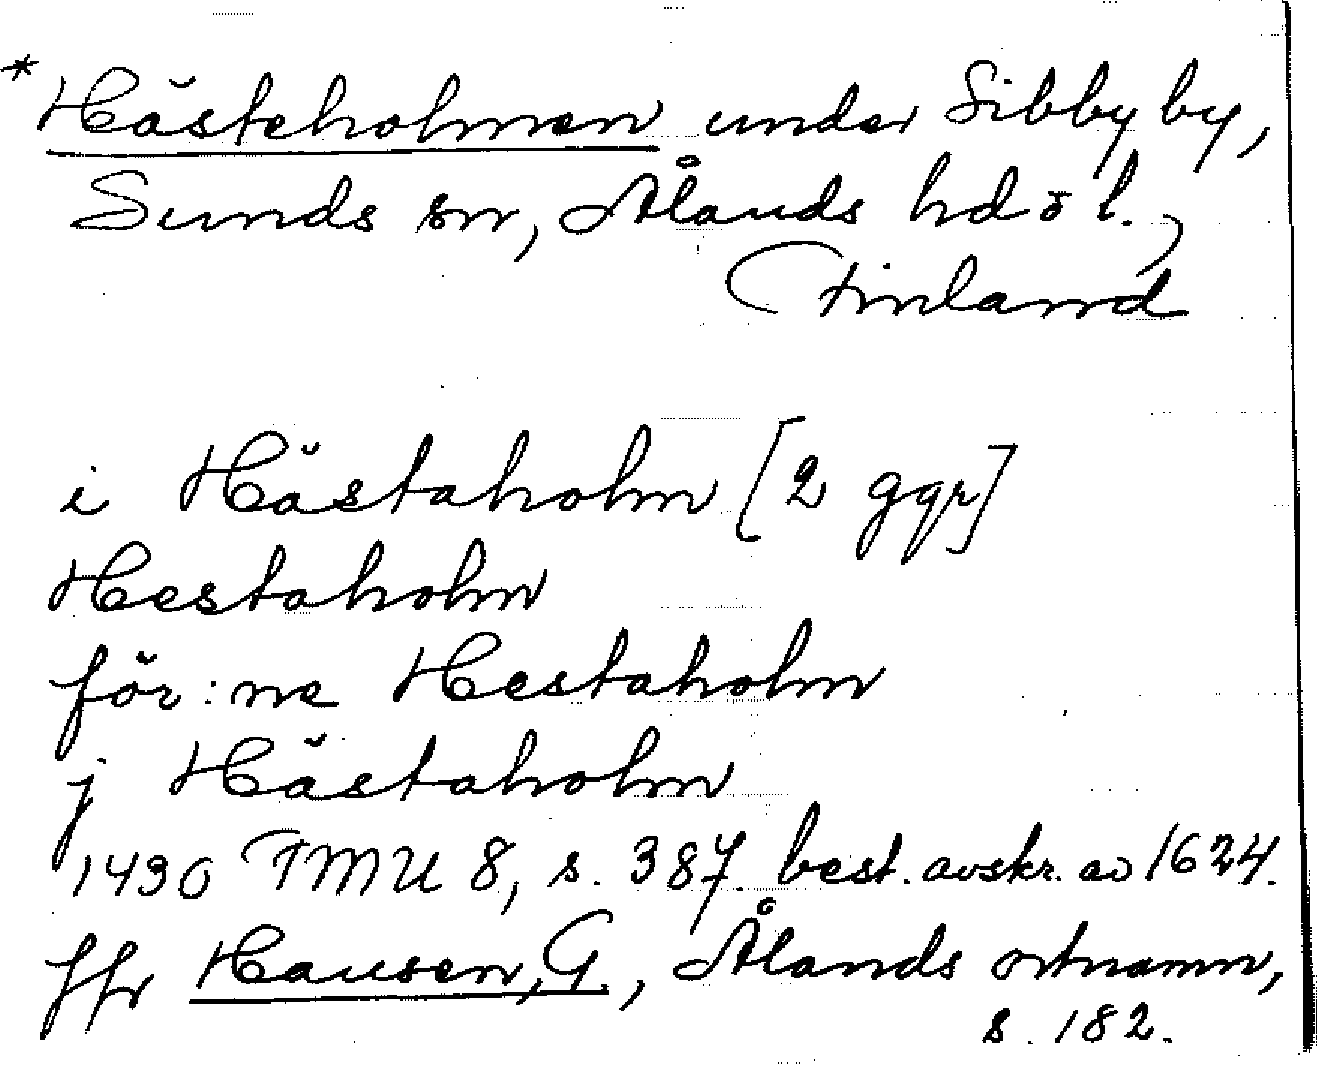 *Hästeholmen under Sibby by,
Sunds sn, Ålands hd o l.,
Finland
i Hästaholm [2 ggr]
Hestaholm
för:ne Hestaholm
j Hästaholm
1430 TMU 8, s. 387. best. avskr. av 1624.
Jfr Hausen, G., Ålands ortnamn,
s. 182.